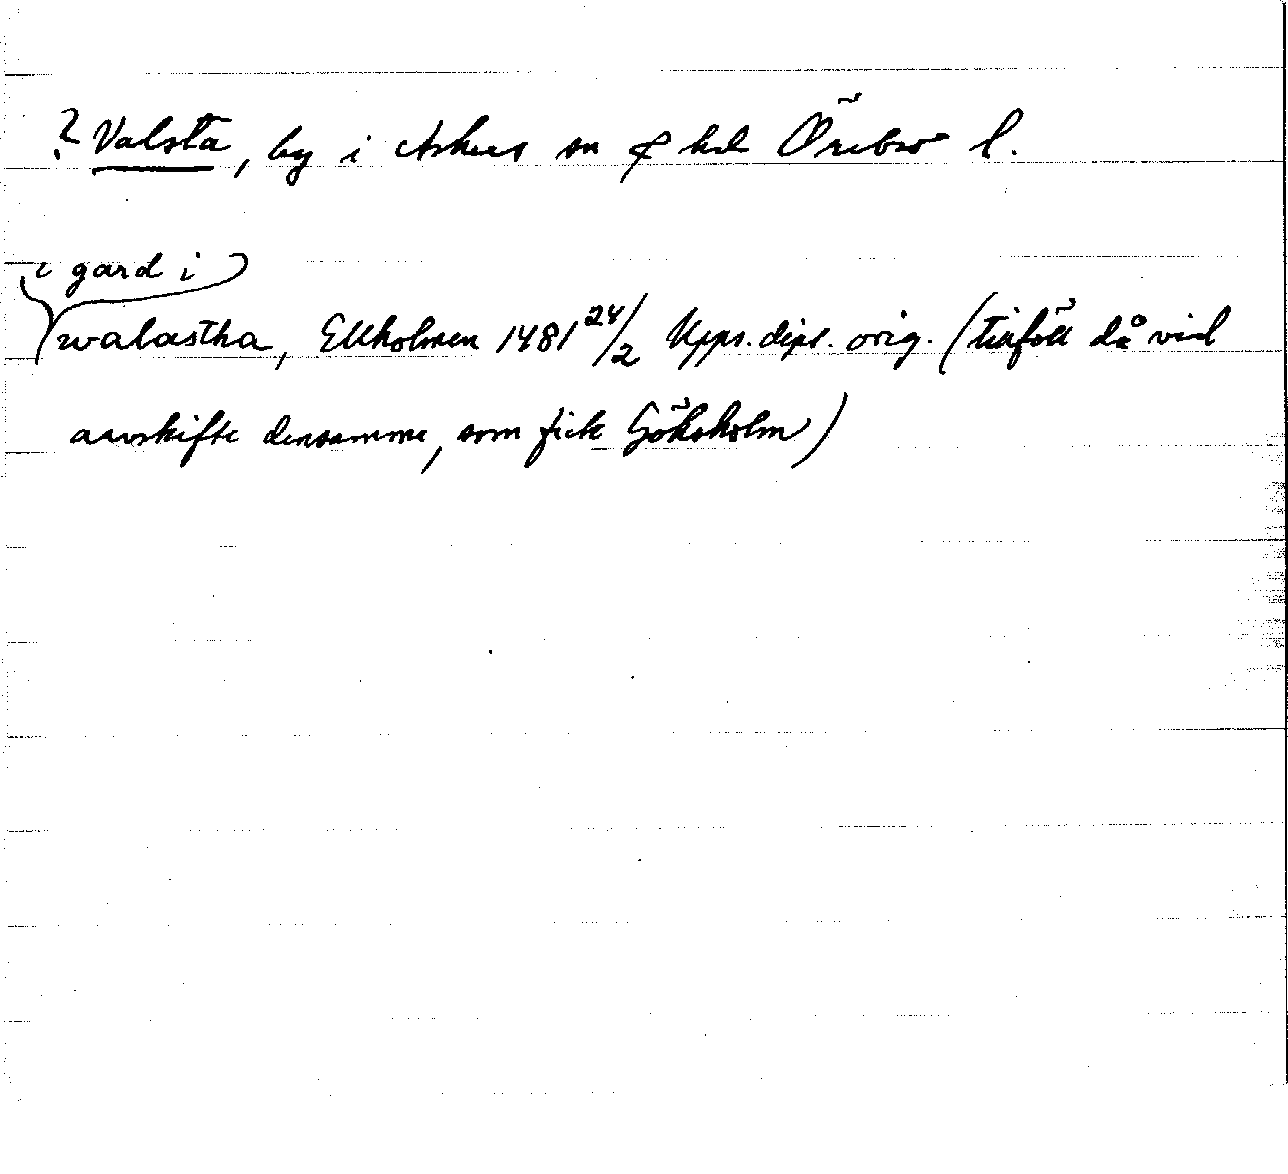 ? Valsta, by i Askers sn & hd Örebro l.
(i gard i)
walastha, Ekholmen 1481 24/2 Upps. dipl. orig. (tillföll då vid
arvskifte densamme, som fick Göksholm)